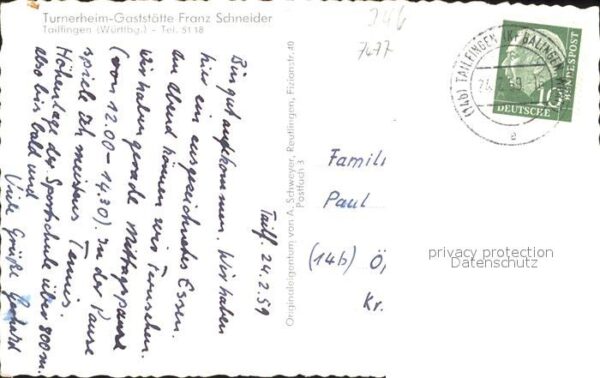 Turnerheim-Gaststätte Franz Schneider
Tailfingen (Württbg.) - Tel. 5118
Tailf. 24.2.59
Bin gut angekommen. Wir haben
hier ein ausgezeichnetes Essen.
Am Abend können wir Fernsehen.
Wir haben gerade Mittagspause
(von 12.00-14.30). In der Pause
spiele ich meistens Tennis.
Höhenlage der Sportschule über 800 m.
Also bis bald und
Viele Grüße Gerhard
Originaleigentum von A. Schweyer, Reutlingen, Fizionstr. 40
Postfach 3
246
7477
(14b) TAILFINGEN (KR BALINGEN)
24. 2. 59
e
10
DEUTSCHE
BUNDESPOST
Famili
Paul
(14b) Ö
Kr.
privacy protection
Datenschutz